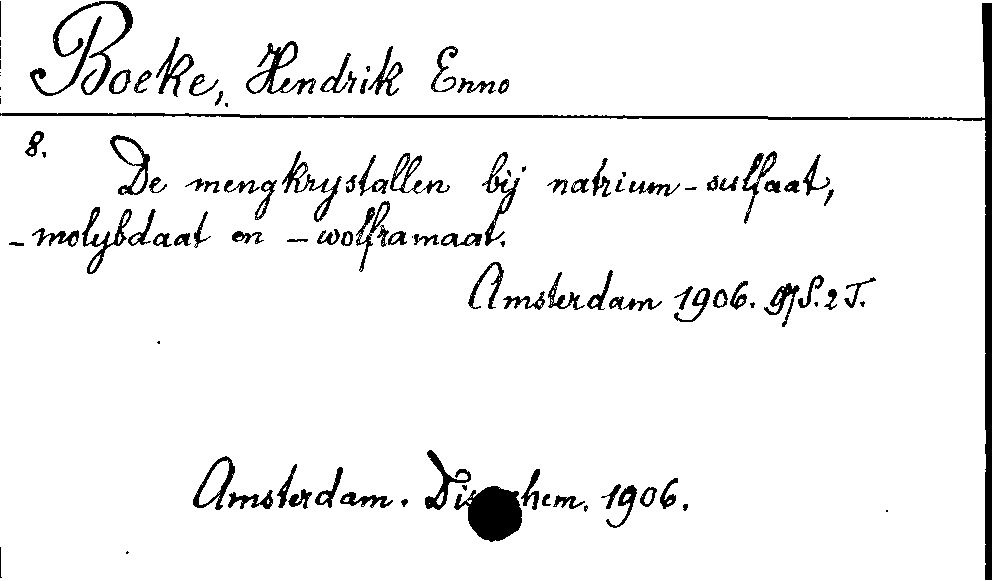 Boeke, Hendrik Enno
8.
De mengkrystallen bij natrium-sulfaat,
-molybdaat en -wolframaat.
Amsterdam 1906. 97 S. 2 T.
Amsterdam. 1906.